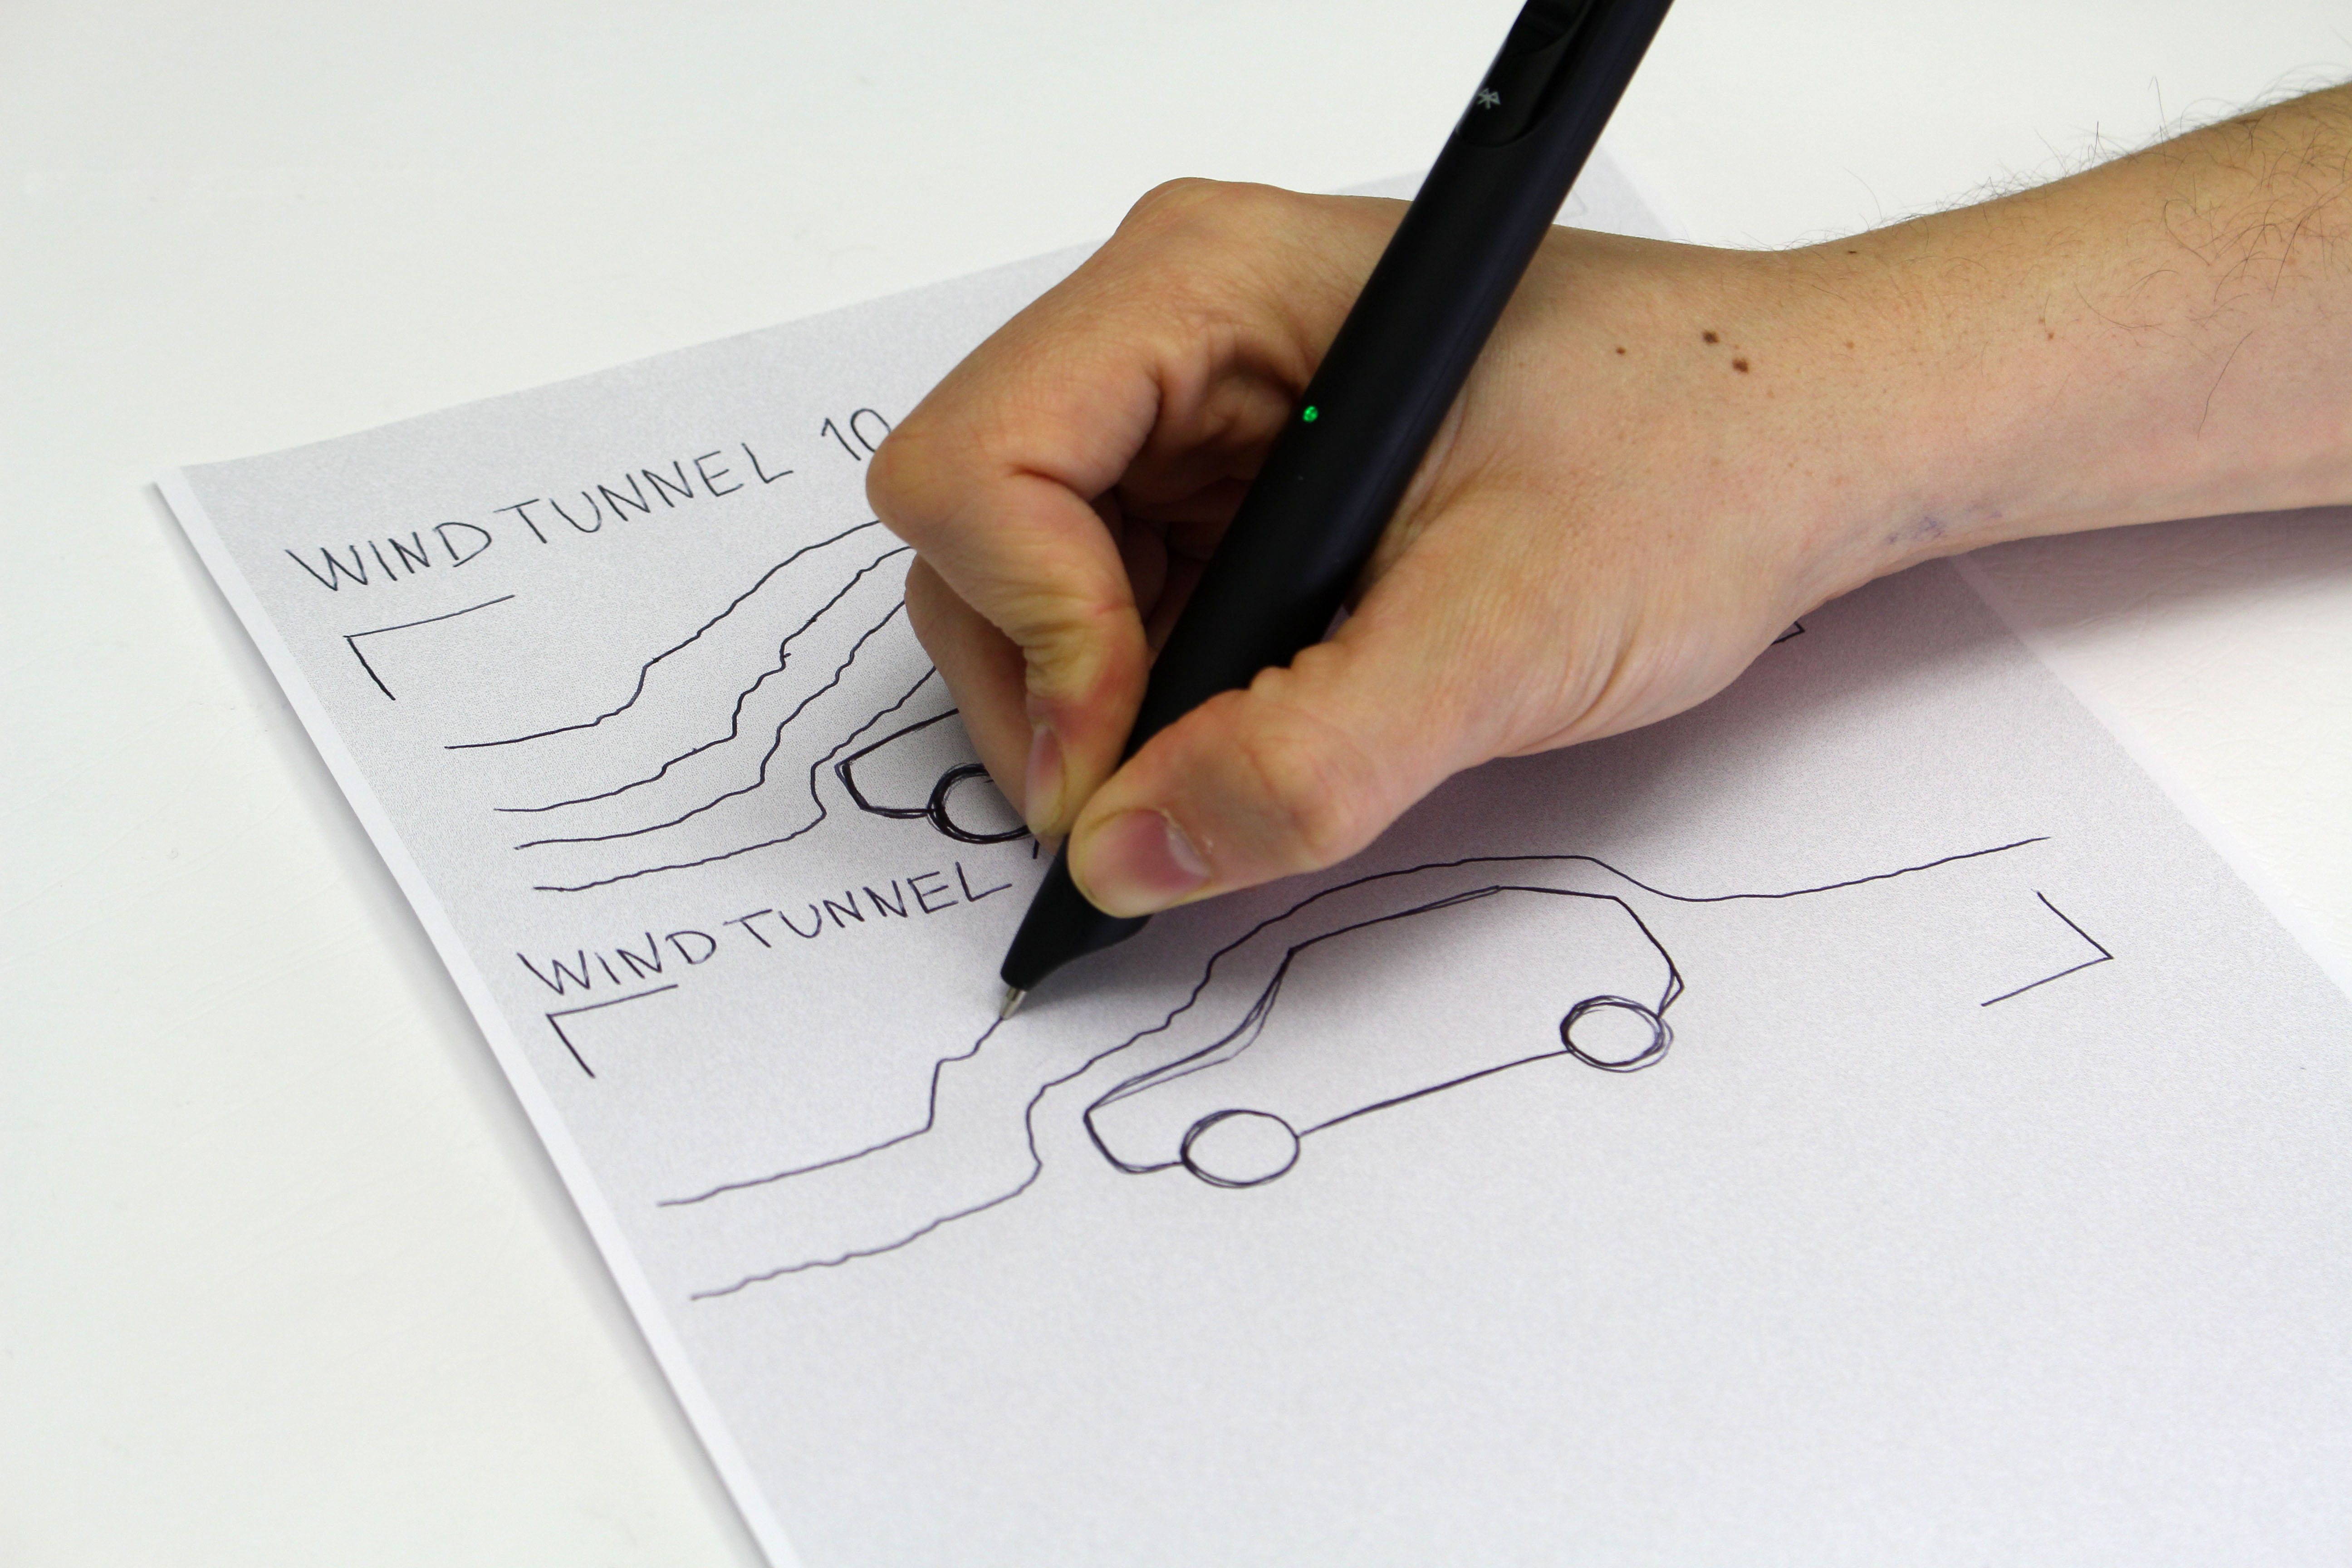 WIND TUNNEL 10
WIND TUNNEL